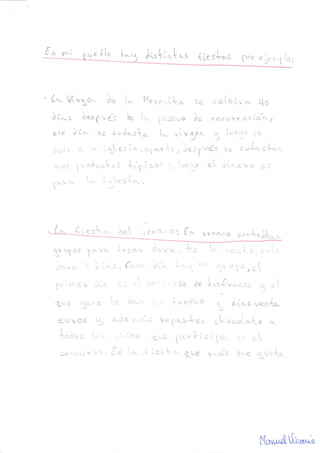 En mi pueblo hay distintas fiestas por ejemplo:
- La Virgen de la Morenita se celebra 40
días después de la pascua de resurrección,
ese día se subasta la virgen y luego se
sube a la iglesia, aparte, después se subastan
mas productos típicos y luego el dinero es
para la iglesia.
La fiesta del verano: En verano contratan
grupos para tocar durante la noche, solo
dura 3 días. Cada día hay un grupo, el
primer día es el concurso de disfraces y el
que gane le dan un trofeo y cincuenta
euros y además reparten chocolate a
todos los niños que participan en el
concurso. Es la fiesta que más me gusta
Manuel Vicario